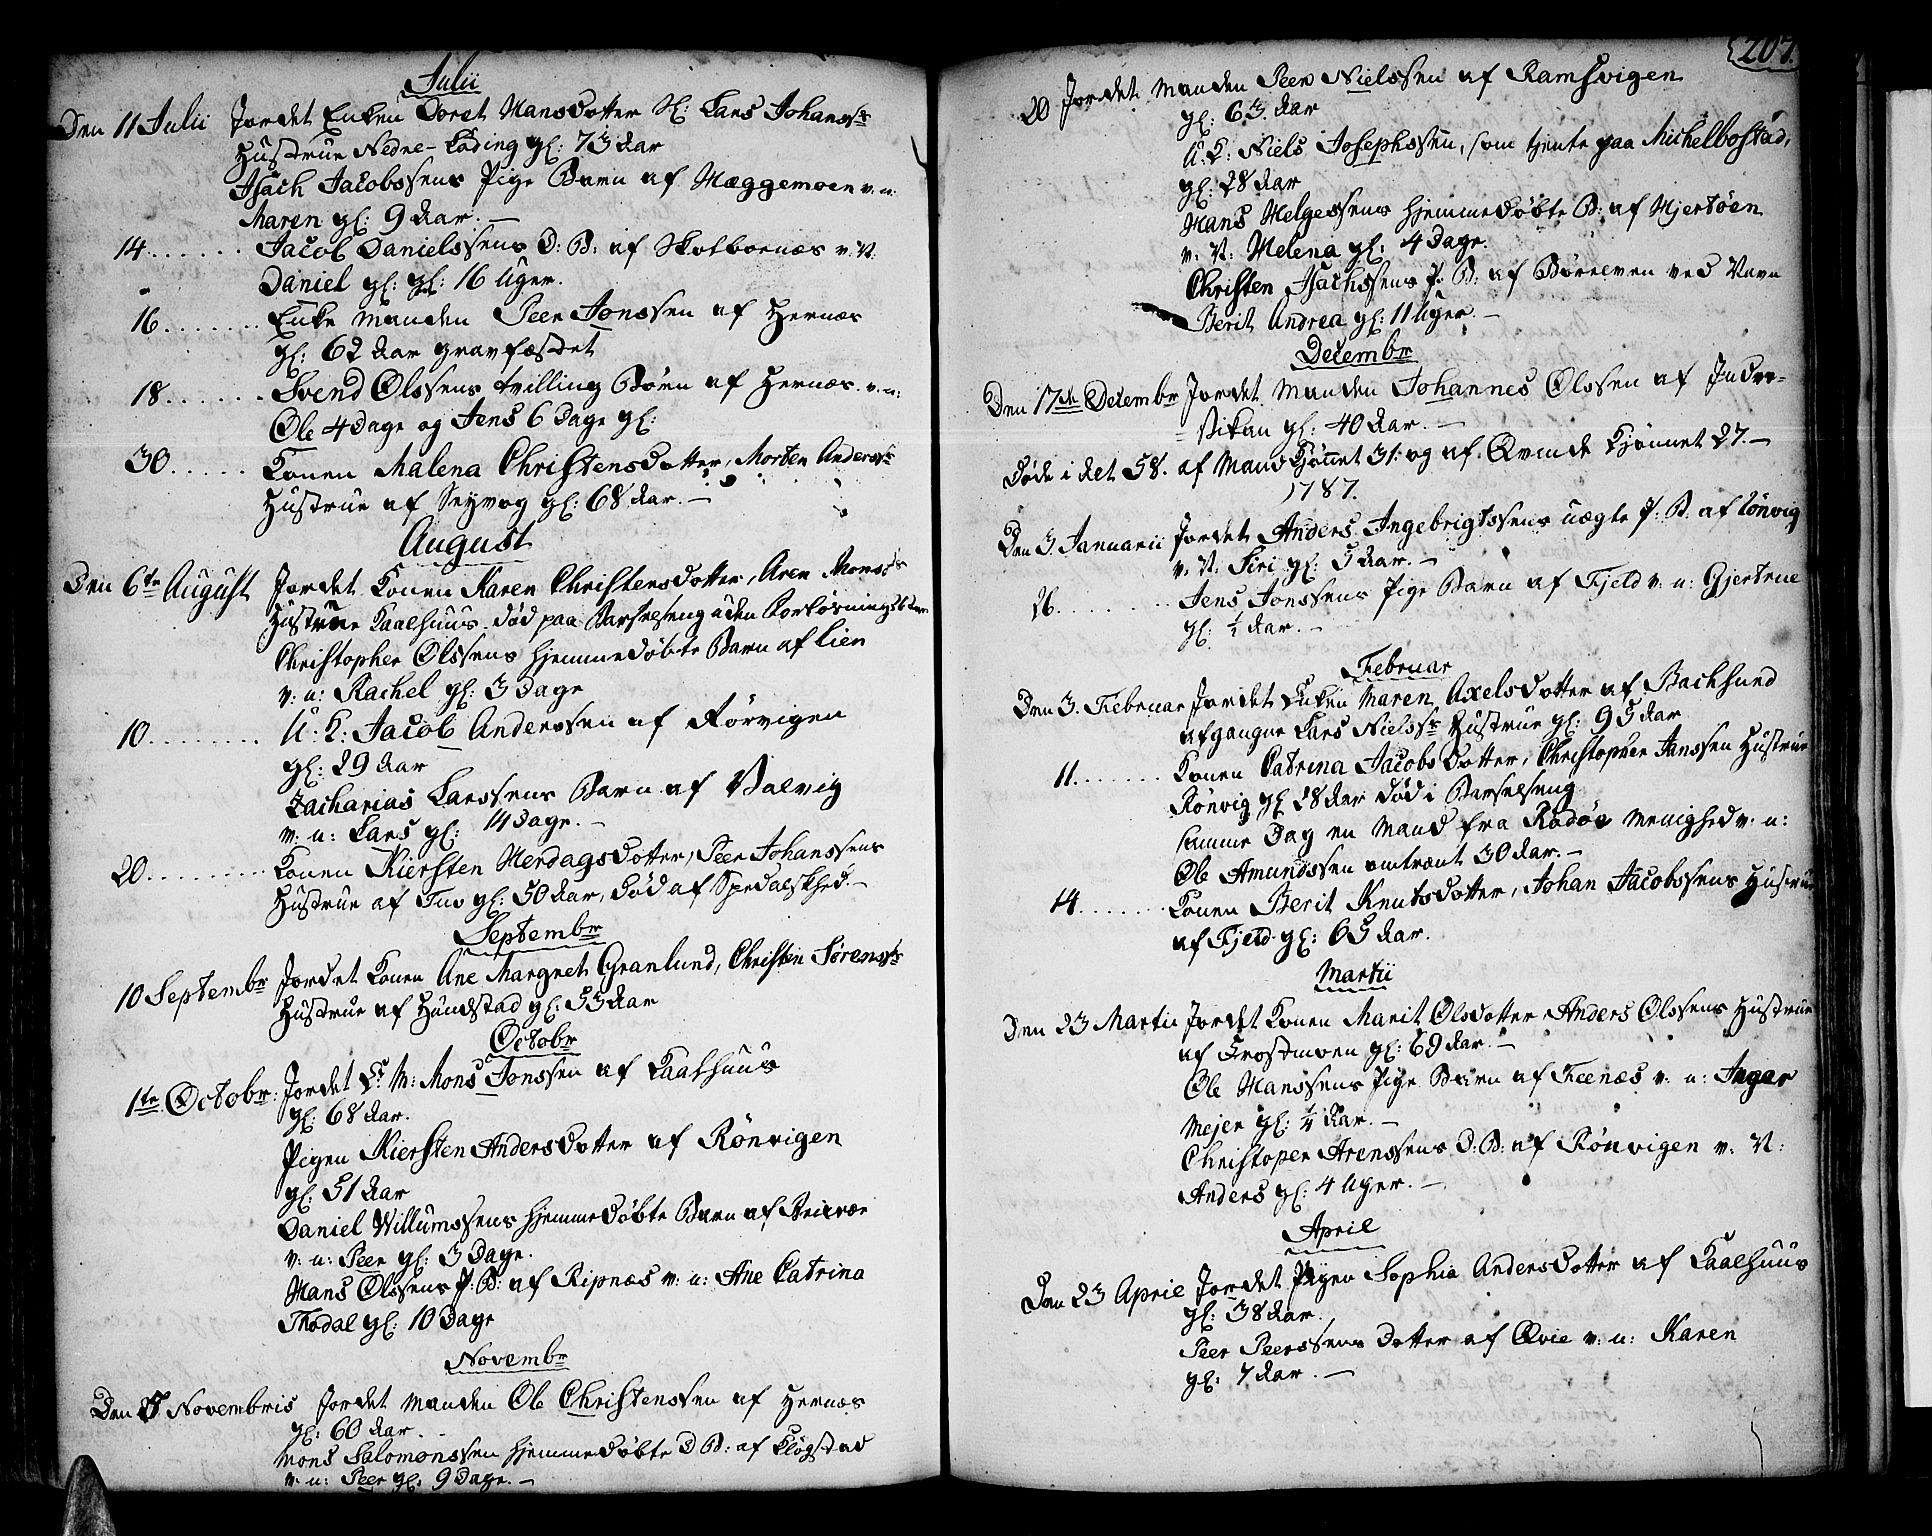 Julii
Den 11 Julii Jordet Enken Doret Hansdotter Sl: Lars Johanss:
Hustrue Nedre-Løding gl: 73 Aar
Isach Jacobssens Pige Barn af Mæggemoen v. n:
Maren gl: 9 Aar. —
14...... Jacob Danielssens D: B: af Skotboenæs v. N.
Daniel gl: gl: 16 Uger.
16....... Enke Manden Peer Jonssen af Hernæs
gl: 62 Aar gravfæstet
18...... Svend Olssens tvilling Børn af Hernæs. v. n:
Ole 4 Dage og Jens 6 Dage gl:
30..... Konen Malena Christensdotter, Morten Anderss:
Hustrue af Seyvog gl: 68 Aar. —
August
Den 6te August Jordet Konen Karen Christensdotter, Aren Monss:
Hustrue Kaalhuus. død paa Barselseng uden Forløsning
Christopher Olssens hjemmedøbte Barn af Lien
v: n: Rachel gl: 3 Dage
10........ U: K: Jacob Anderssen af Rørvigen
gl: 29 Aar
Zacharias Larssens Barn af Valvig
v: n: Lars gl: 14 Dage. —
20........ Konen Kiersten Herdagsdotter, Peer Johanssens
Hustrue af Tuv gl: 50 Aar, død af Spedalskhed. —
Septembr
10 Septembr Jordet Konen Ane Margret Granlund, Christen Sørenss:
Hustrue af Hundstad gl: 53 Aar
Octobr
1te Octobr: Jordet M: Mons Jonssen af Kaalhuus
gl: 68 Aar.
Pigen Kiersten Andersdotter af Rönvigen
gl: 51 Aar
Daniel Willumssens hjemmedøbte Barn af
v: n: Peer gl: 3 Dage.
Hans Olssens P: B: af Ripnæs v: n: Ane Catrina
Thodal gl: 10 Dage
Novembr
Den 5 Novembris Jordet Manden Ole Christenssen af Hernæs
gl: 60 Aar.
Mons Salomonssen hjemmedøbte D B: af Kløgstad
v: n: Peer gl: 9 Dage. —
207.
20 Jordet Manden Peer Nielssen af Ramsvigen
gl: 63 Aar
U: K: Niels Josephssen, som tjente paa Michelbostad,
gl: 28 Aar
Hans Helgessens hjemmedøbte B: af Hjertøen
v. N: Helena gl: 4 Dage.
Christen Isachssens P: B: af Børeløen ved Navn
Berit Andrea gl: 11 Uger. —
Decembr
Den 17de Decembr Jordet Manden Johannes Olssen af Indre-
=Vikan gl: 40 Aar. —
Døde i det 58. af Mandkjønnet 31. og af Qvinde Kjønnet 27. —
1787.
Den 3. Januarii Jordet Anders Ingebrigtssens uægte P: B. af Lønvig
v. N: Siri gl: 5 Aar. —
26........ Jens Jonssens Pige Barn af Fjeld v: n: Gjertrue
gl: 1/2 Aar. —
Februar
Den 3. Februar Jordet Enken Maren Axelsdotter af Bachsund
afgangne Lars Nielss: Hustrue gl: 95 Aar
11....... Konen Catrina Jacobsdotter, Christopher Janssen Hustrue
Rønvig gl 28 Aar død i Barselseng
samme Dag en Mand fra Rødøe Menighed v: n:
Ole Amundssen omtrent 30 Aar. —
14....... Konen Berit Knutsdotter, Johan Jacobssens Hustrue
af Fjeld gl: 65 Aar.
Martii
Den 23 Martii Jordet Konen Marit Olsdotter, Anders Olssens Hustrue
af Frostmoen gl: 69 Aar. —
Ole Hanssens Pige Barn af Feenæs v: n: Ingar
Mejer gl: 1/4 Aar. —
Christoper Arenssens D: B: af Rönvigen v: N:
Anders gl: 4 Uger. —
April
Den 23 April Jordet Pigen Sophia Andersdotter af Kaalhuus
gl: 38 Aar.
Peer Peerssens Dotter af Evie v: n: Karen
gl: 7 Aar. —